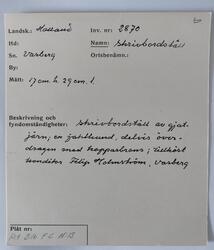 Landsk.: Halland Inv. nr: 2870
Hd: Namn: Skrivbordställ
Sn. Varberg Ortsbenämn.:
By:
Mått: 17 cm h. 29 cm l.
Beskrivning och
fyndomständigheter: Skrivbordställ av gjut-
järn; en jakthund, delvis över-
dragen med kopparbrons; tillhört
kondiktor Filip Holmström, Varberg
Plåt nr: